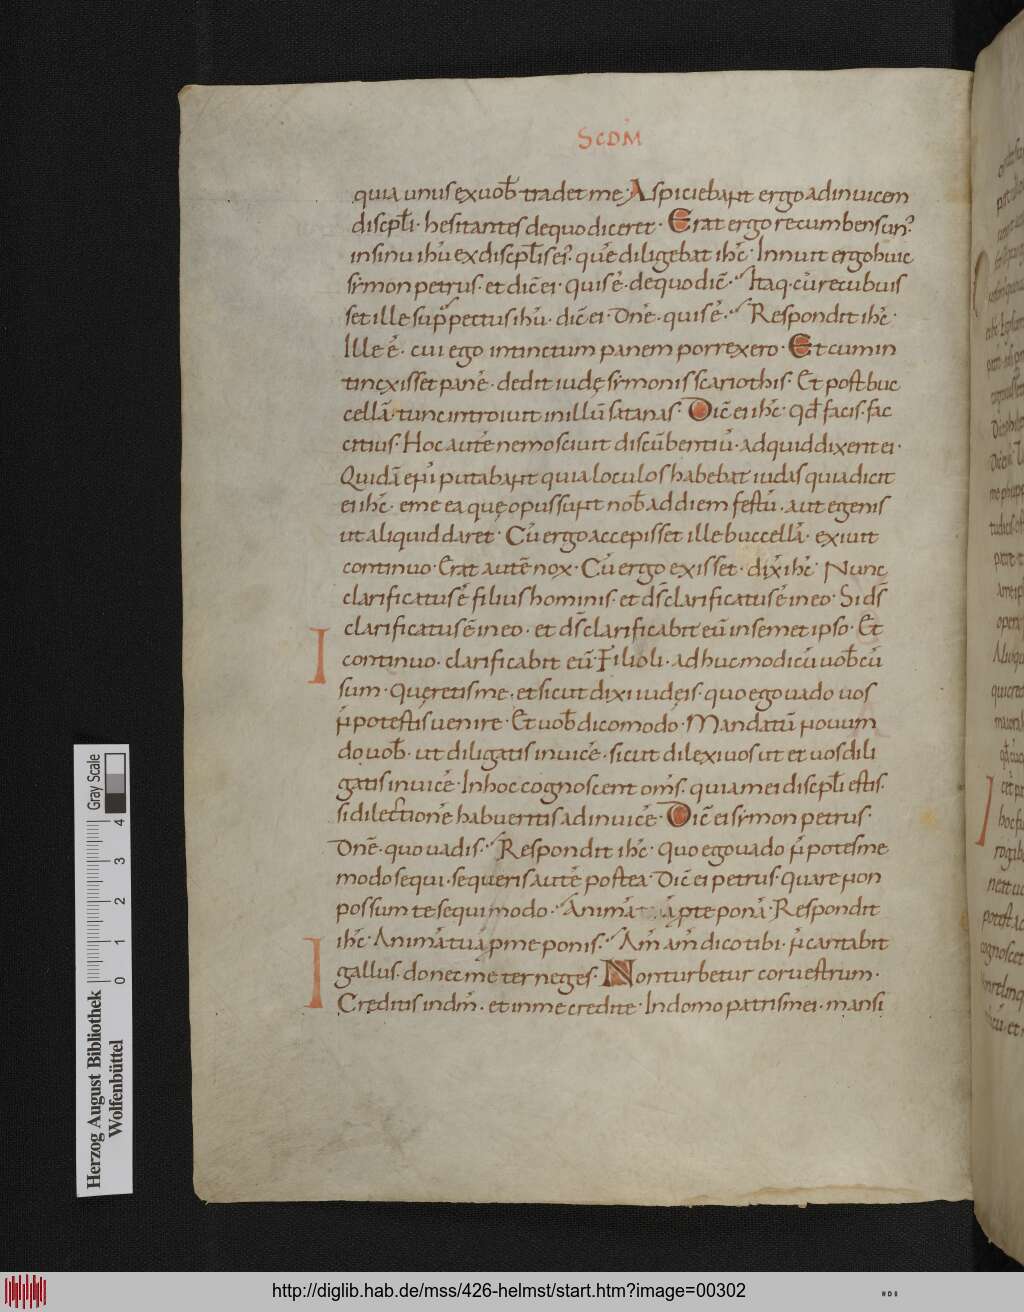 SCDM̄
quia unus ex uob̄ tradet me· Aspiciebant ergo adinuicem
discpl̄i· hesitantes de quo diceret· Erat ergo recumbens un᾽
in sinu ihū ex discpl̄is ei᾽ quē diligebat ihc̄· Innuit ergo huic
simon petrus· et dic̄ ei· quis ē· de quo dic̄· Itaq· cū recubuis
set ille sup̄ pectus ihū· dic̄ ei· Dn̄e· quis ē· Respondit ihc̄·
Ille ē· cui ego intinctum panem porrexero· Et cum in
tinxisset panē· dedit iudę simonis scariothis· Et post buc
cellā· tunc introiuit in illū satanas· Dic̄ ei ihc̄· qd̄ facis· fac
citius· Hoc autē nemo sciuit discūbentiū· ad quid dixerit ei·
Quidā eni putabant quia loculos habebat iudas quia dicit
ei ihc̄· eme ea quę opus sunt nob̄ ad diem festū· aut egenis
ut aliquid daret· Cū ergo accepisset ille buccellā· exiuit
continuo· Erat autē nox· Cū ergo exisset· dix̄ ihc̄· Nunc
clarificatus ē filius hominis· et ds̄ clarificatus ē in eo· Si ds̄
clarificatus ē in eo· et ds̄ clarificabit eū in semetipso· Et
continuo· clarificabit eū· Filioli· adhuc modicū uob̄cū
sum· Queretis me· et sicut dixi iudeis· quo ego uado uos
n̄ potestis uenire· Et uob̄ dico modo· Mandatū nouum
do uob̄· ut diligatis inuicē· sicut dilexi uos ut et uos dili
gatis inuicē· In hoc cognoscent oms̄· quia mei discpl̄i estis·
si dilectionē habueritis adinuicē· Dic̄ ei simon petrus·
Dn̄e· quo uadis· Respondit ihc̄· quo ego uado n̄ potes me
modo sequi· sequeris autē postea· Dic̄ ei petrus· quare non
possum te sequi modo· Animā p te ponā· Respondit
ihc̄· Animā tuā p me ponis· Am̄ am̄ dico tibi· n̄ cantabit
gallus· donec me ter neges· Non turbetur cor uestrum·
Creditis in dm̄· et in me credite· In domo patris mei· mansi
Gray Scale
0 1 2 3 4
Herzog August Bibliothek
Wolfenbüttel
http://diglib.hab.de/mss/426-helmst/start.htm?image=00302